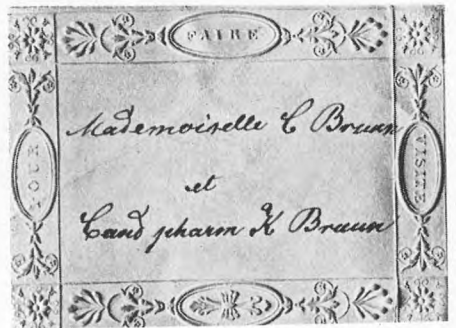 POUR
FAIRE
VISITE
Mademoiselle C Bruun
et
Cand pharm K Bruun